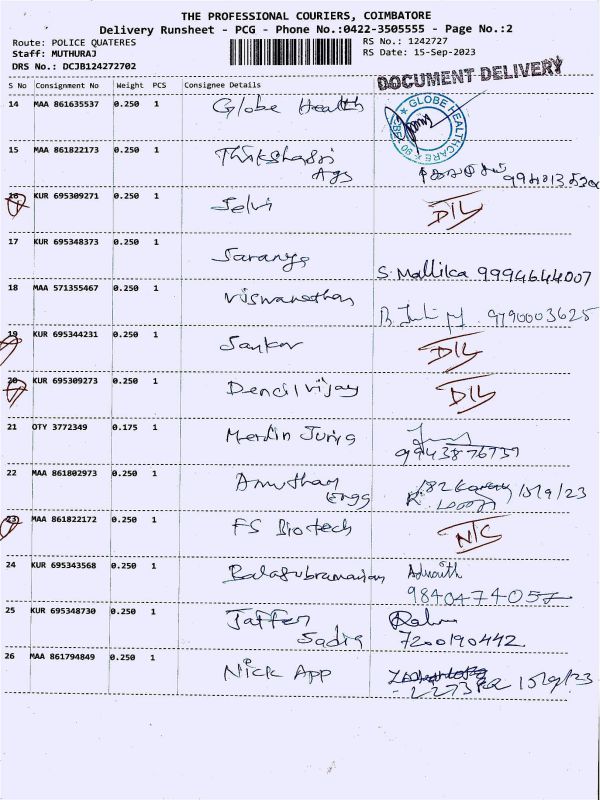 THE PROFESSIONAL COURIERS, COIMBATORE
Delivery Runsheet - PCG - Phone No.:0422-3505555 - Page No.:2
Route: POLICE QUATERES
RS No.: 1242727
Staff: MUTHURAJ
RS Date: 15-Sep-2023
DRS No.: DCJB124272702
DOCUMENT DELIVERY
S No Consignment No Weight PCS Consignee Details
14 MAA 861635537 0.250 1 Globe Health
GLOBE HEALTHCARE
15 MAA 861822173 0.250 1
Ags
16 KUR 695309271 0.250 1 Selvi D/L
17 KUR 695348373 0.250 1 Saranya S. Mallika 9994644007
18 MAA 571355467 0.250 1 Viswanathan 9790003625
19 KUR 695344231 0.250 1 Sankar D/L
20 KUR 695309273 0.250 1 Dencil vijay D/L
21 OTY 3772349 0.175 1 Merlin
22 MAA 861802973 0.250 1 Amuthan 15/9/23
Engg
23 MAA 861822172 0.250 1 FS Biotech N/C
24 KUR 695343568 0.250 1 Balasubramanian
25 KUR 695348730 0.250 1 Jaffer
Sadiq 7200190442
26 MAA 861794849 0.250 1 Nick App
15/9/23